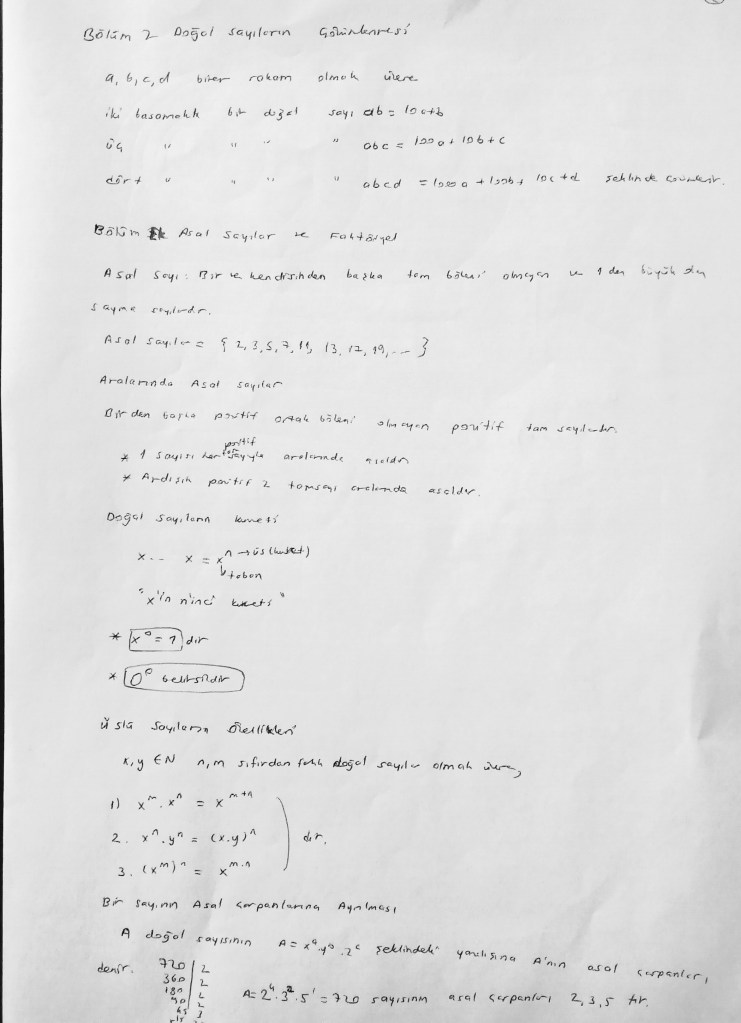 Bölüm 2 Doğal Sayıların Çözümlenmesi
a, b, c, d birer rakam olmak üzere
iki basamaklı bir doğal sayı ab = 10a+b
üç " " " " abc = 100a + 10b + c
dört " " " " abcd = 1000a + 100b + 10c + d şeklinde çözümlenir.
Bölüm Asal Sayılar ve Faktöriyel
Asal Sayı : Bir ve kendisinden başka tam böleni olmayan ve 1 den büyük olan
sayma sayılardır.
Asal Sayılar = { 2, 3, 5, 7, 11, 13, 17, 19, ... }
Aralarında Asal sayılar
Birden başka pozitif ortak böleni olmayan pozitif tam sayılardır.
* 1 sayısı her pozitif tam sayıyla aralarında asaldır
* Ardışık pozitif 2 tamsayı aralarında asaldır.
Doğal Sayıların kuvveti
x... x = xⁿ → üs (kuvvet)
↳ taban
"x'in n'inci kuvveti"
* x⁰ = 1 dir
* 0⁰ belirsizdir
üslü Sayıların Özellikleri
x, y ∈ N n, m sıfırdan farklı doğal sayılar olmak üzere,
1) xᵐ . xⁿ = xᵐ⁺ⁿ
2. xⁿ . yⁿ = (x.y)ⁿ dir.
3. (xᵐ)ⁿ = xᵐ·ⁿ
Bir Sayının Asal Çarpanlarına Ayrılması
A doğal sayısının A = xᵃ.yᵇ.zᶜ şeklindeki yazılışına A'nın asal çarpanları
denir.
720 | 2
360 | 2
180 | 2
90 | 2
45 | 3
A = 2⁴.3².5¹ = 720 sayısının asal çarpanları 2, 3, 5 tir.